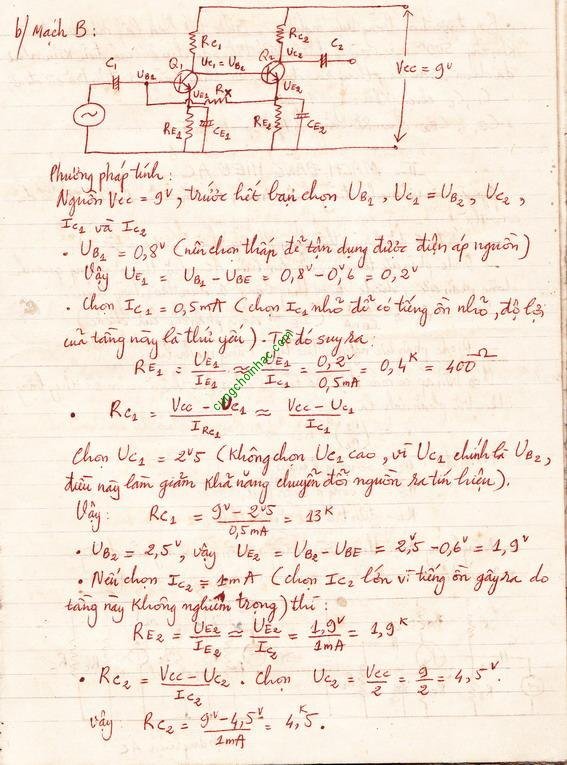 b/ Mạch B:
RC1 UC1 = UB2 RC2 UC2 C2
C1 UB1 Q1 Q2 VCC = 9V
UE1 Rx UE2
RE1 CE1 RE2 CE2
Phương pháp tính:
Nguồn VCC = 9V, trước hết bạn chọn UB1, UC1 = UB2, UC2,
IC1 và IC2
• UB1 = 0,8V (nên chọn thấp để tận dụng được điện áp nguồn)
Vậy UE1 = UB1 - UBE = 0,8V - 0V,6 = 0,2V
• Chọn IC1 = 0,5mA (chọn IC1 nhỏ để có tiếng ồn nhỏ, độ lợi
của tầng này là thứ yếu). Từ đó suy ra:
RE1 = UE1/IE1 ≈ UE1/IC1 = 0,2V/0,5mA = 0,4K = 400Ω
• RC1 = (VCC - UC1)/IRC1 ≈ (VCC - UC1)/IC1
Chọn UC1 = 2V5 (không chọn UC1 cao, vì UC1 chính là UB2,
điều này làm giảm khả năng chuyển đổi nguồn ra tín hiệu).
Vậy: RC1 = (9V - 2V5)/0,5mA = 13K
• UB2 = 2,5V, vậy UE2 = UB2 - UBE = 2V5 - 0,6V = 1,9V
• Nếu chọn IC2 = 1mA (chọn IC2 lớn vì tiếng ồn gây ra do
tầng này không nghiêm trọng) thì:
RE2 = UE2/IE2 ≈ UE2/IC2 = 1,9V/1mA = 1,9K
• RC2 = (VCC - UC2)/IC2 . Chọn UC2 = VCC/2 = 9/2 = 4,5V.
Vậy: RC2 = (9V - 4,5V)/1mA = 4,K5.
cungchoinhac.com